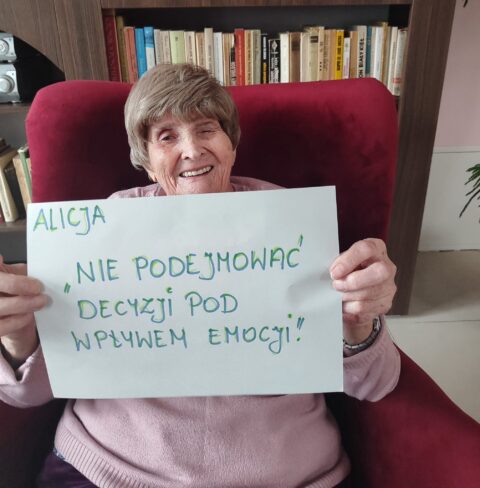 ALICJA
„NIE PODEJMOWAĆ
DECYZJI POD
WPŁYWEM EMOCJI!"